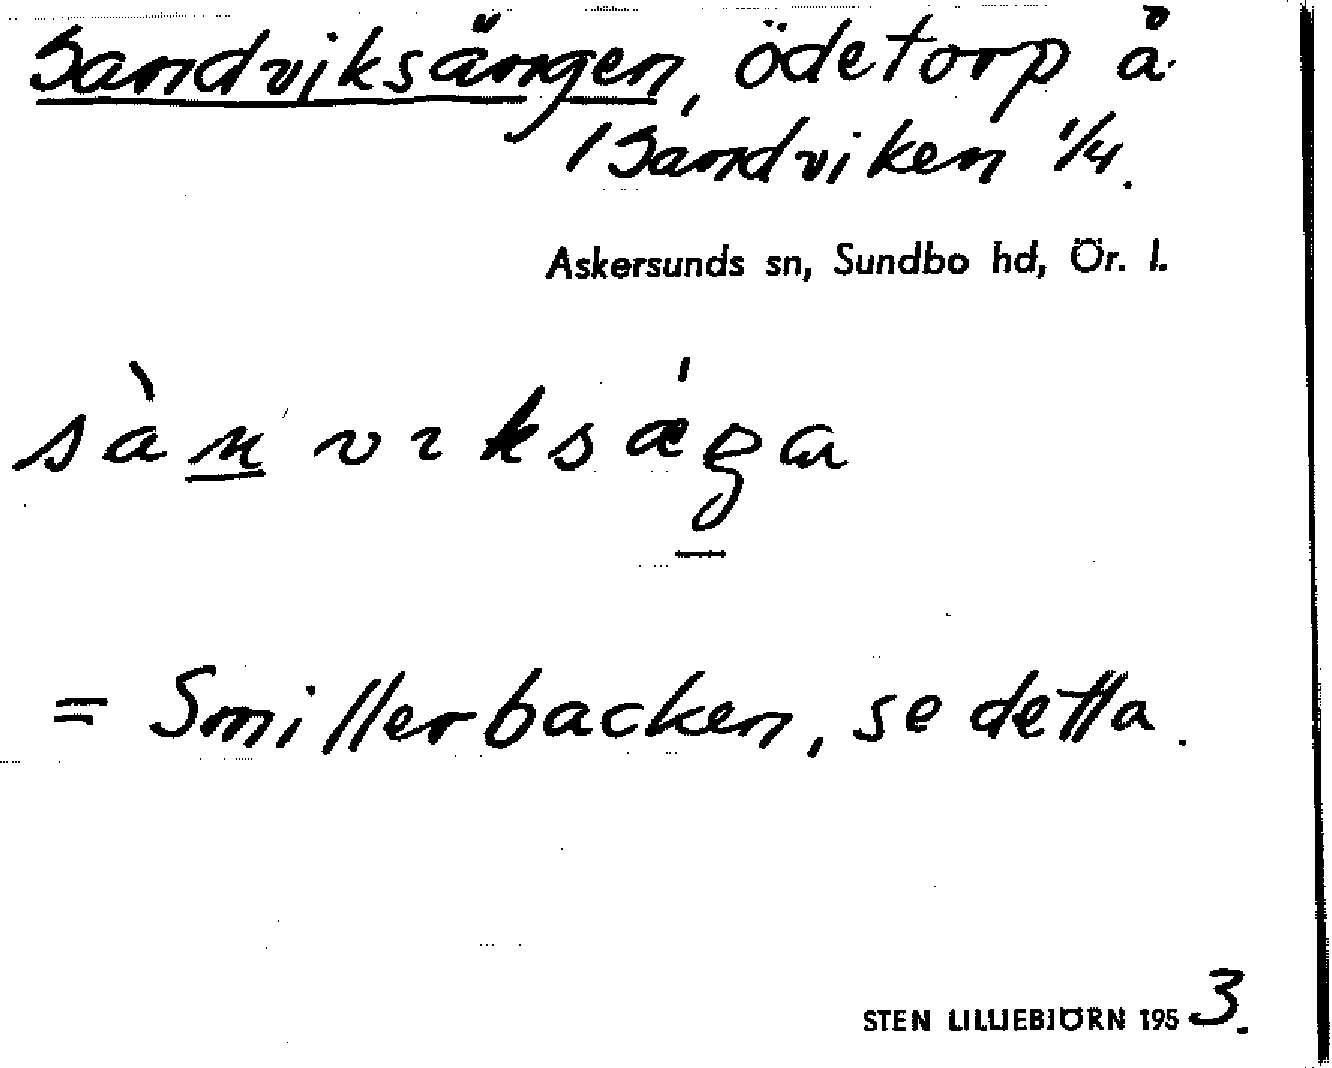 Sandviksängen, ödetorp å
/Sandviken 1/4.
Askersunds sn, Sundbo hd, Ör. l.
sàn viksǽŋa
= Smillerbacken, se detta.
STEN LILLIEBJÖRN 1953.